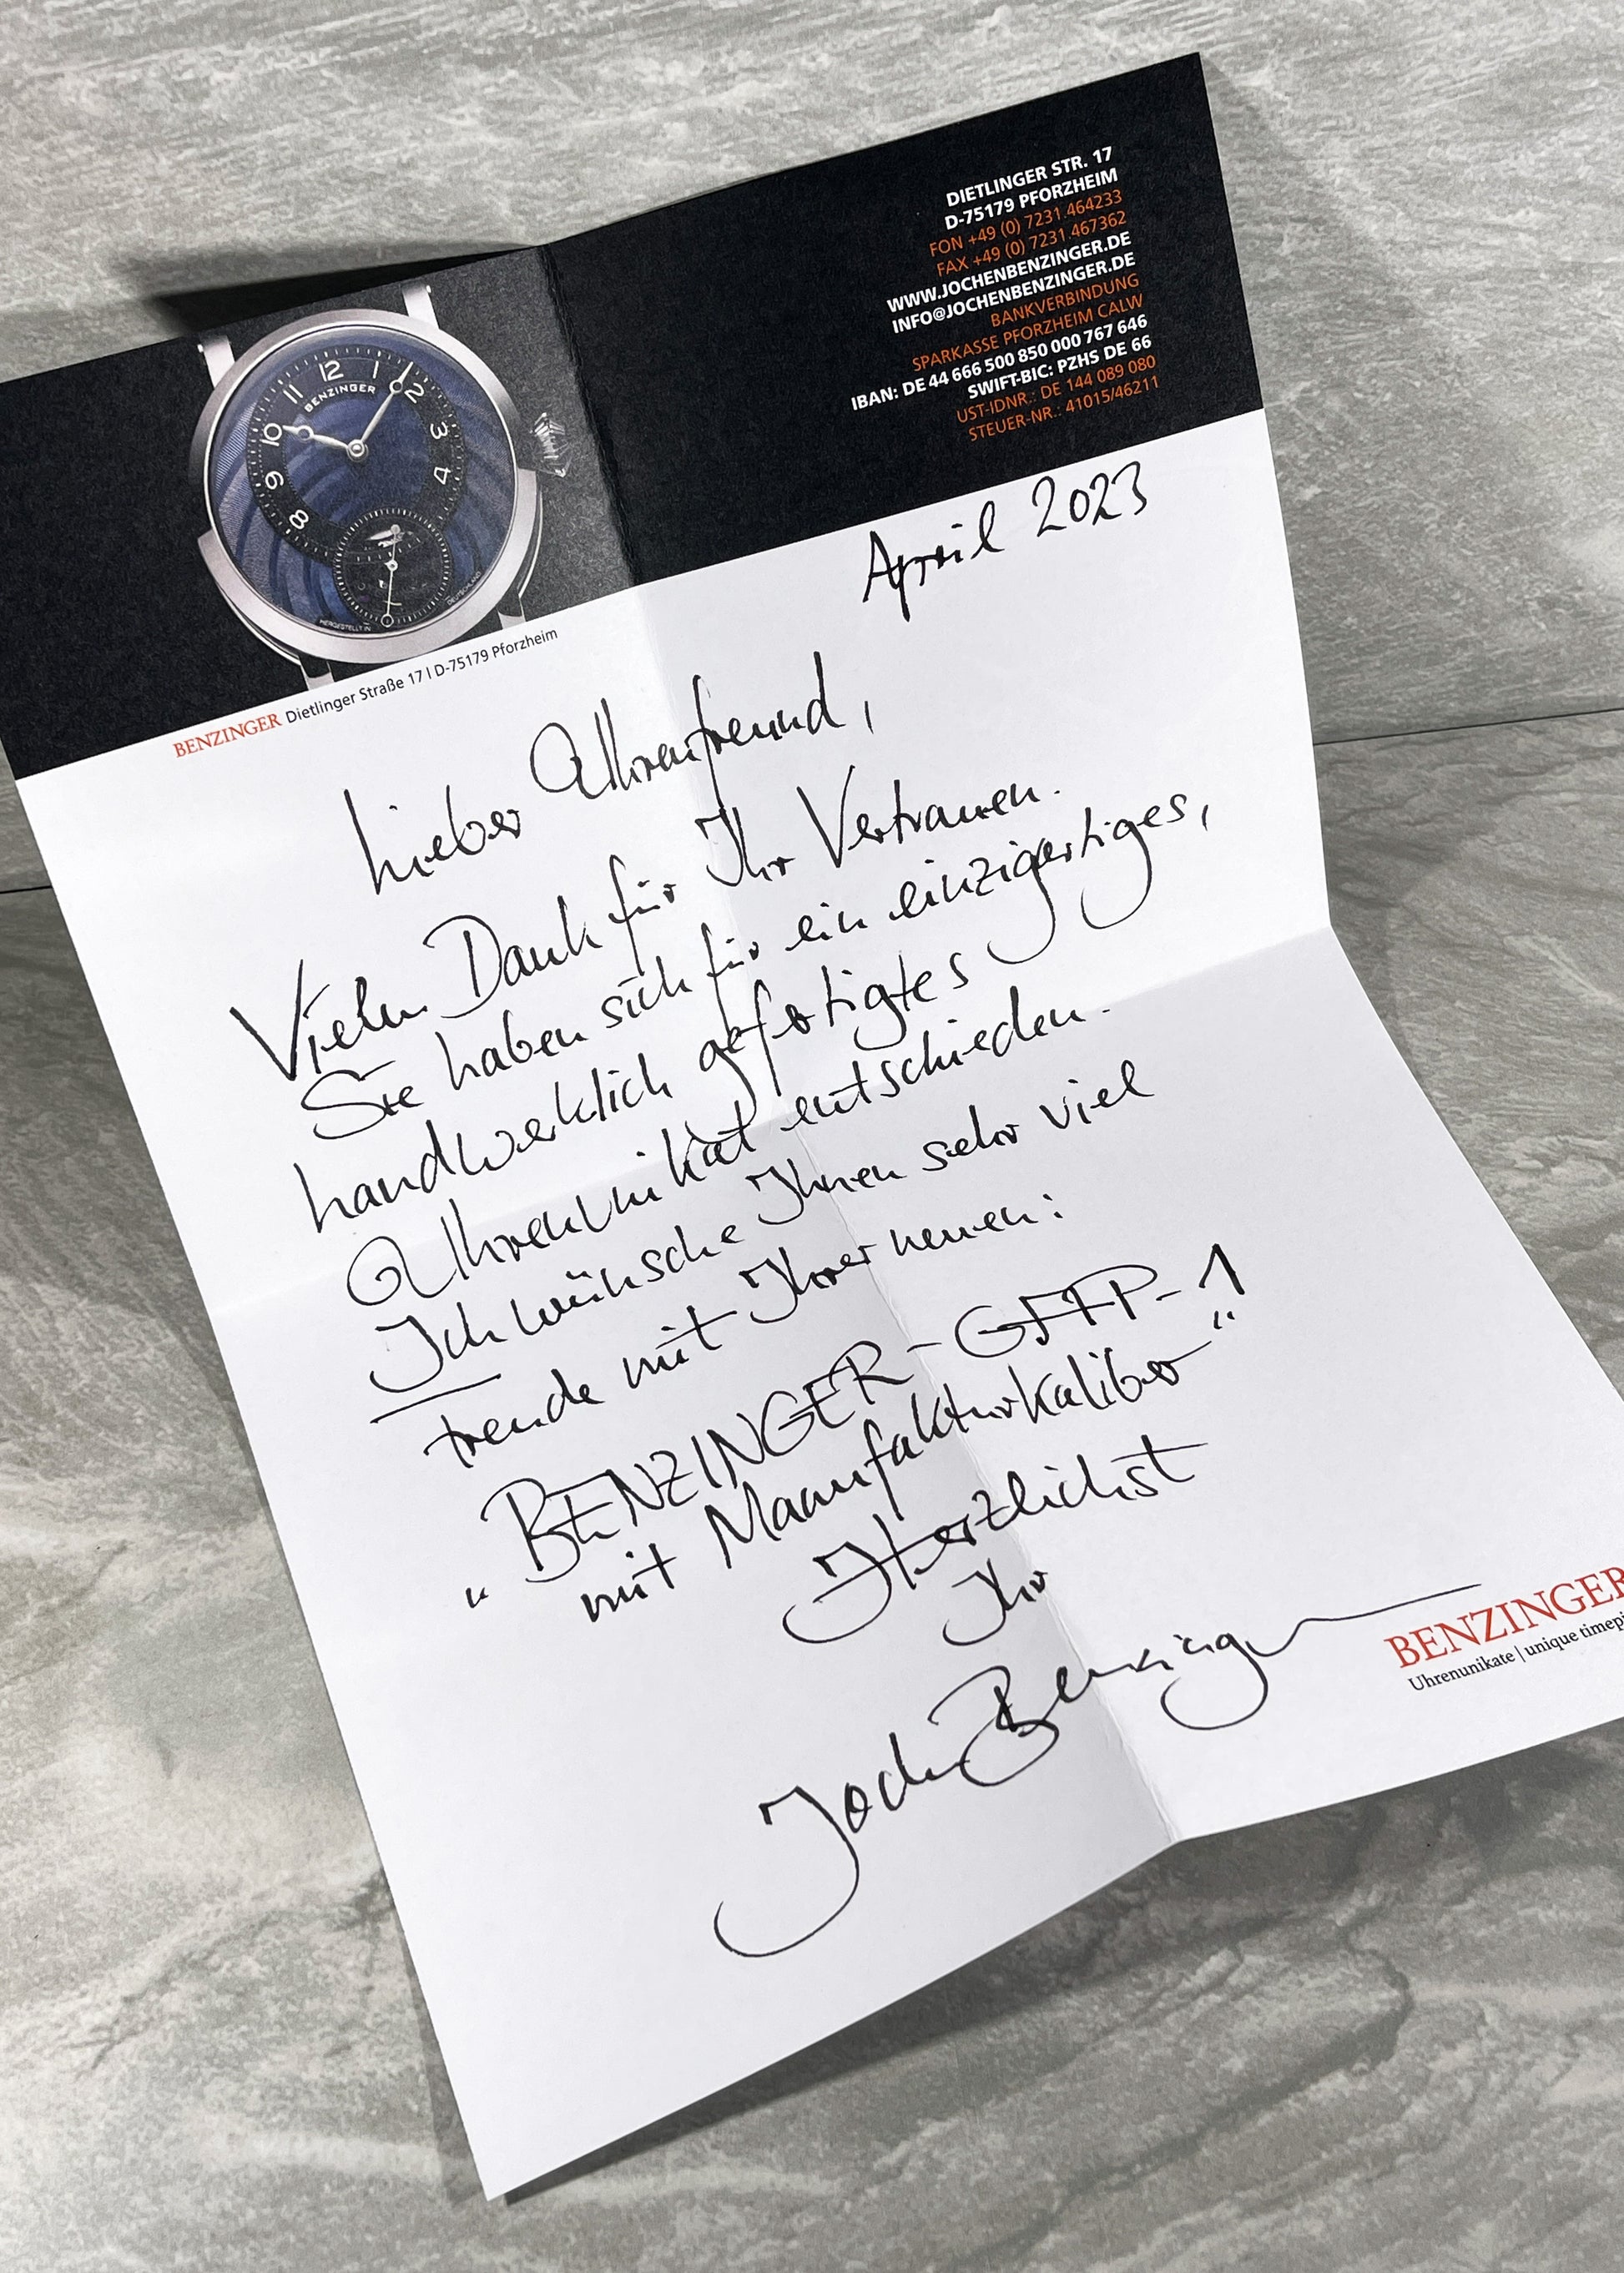 DIETLINGER STR. 17
D-75179 PFORZHEIM
FON +49 (0) 7231.464233
FAX +49 (0) 7231.467362
WWW.JOCHENBENZINGER.DE
INFO@JOCHENBENZINGER.DE
BANKVERBINDUNG
SPARKASSE PFORZHEIM CALW
IBAN: DE 44 666 500 850 000 767 646
SWIFT-BIC: PZHS DE 66
UST-IDNR.: DE 144 089 080
STEUER-NR.: 41015/46211
12 1 2 3 4 8 9 10 11
BENZINGER
HERGESTELLT IN DEUTSCHLAND
BENZINGER Dietlinger Straße 17 | D-75179 Pforzheim
April 2023
Lieber Uhrenfreund,
Vielen Dank für Ihr Vertrauen.
Sie haben sich für ein einzigartiges,
handwerklich gefertigtes
Uhrenunikat entschieden.
Ich wünsche Ihnen sehr viel
Freude mit Ihrer neuen:
"BENZINGER-GFFP-1
mit Manufakturkaliber"
Herzlichst
Ihr
Jochen Benzinger
BENZINGER
Uhrenunikate | unique